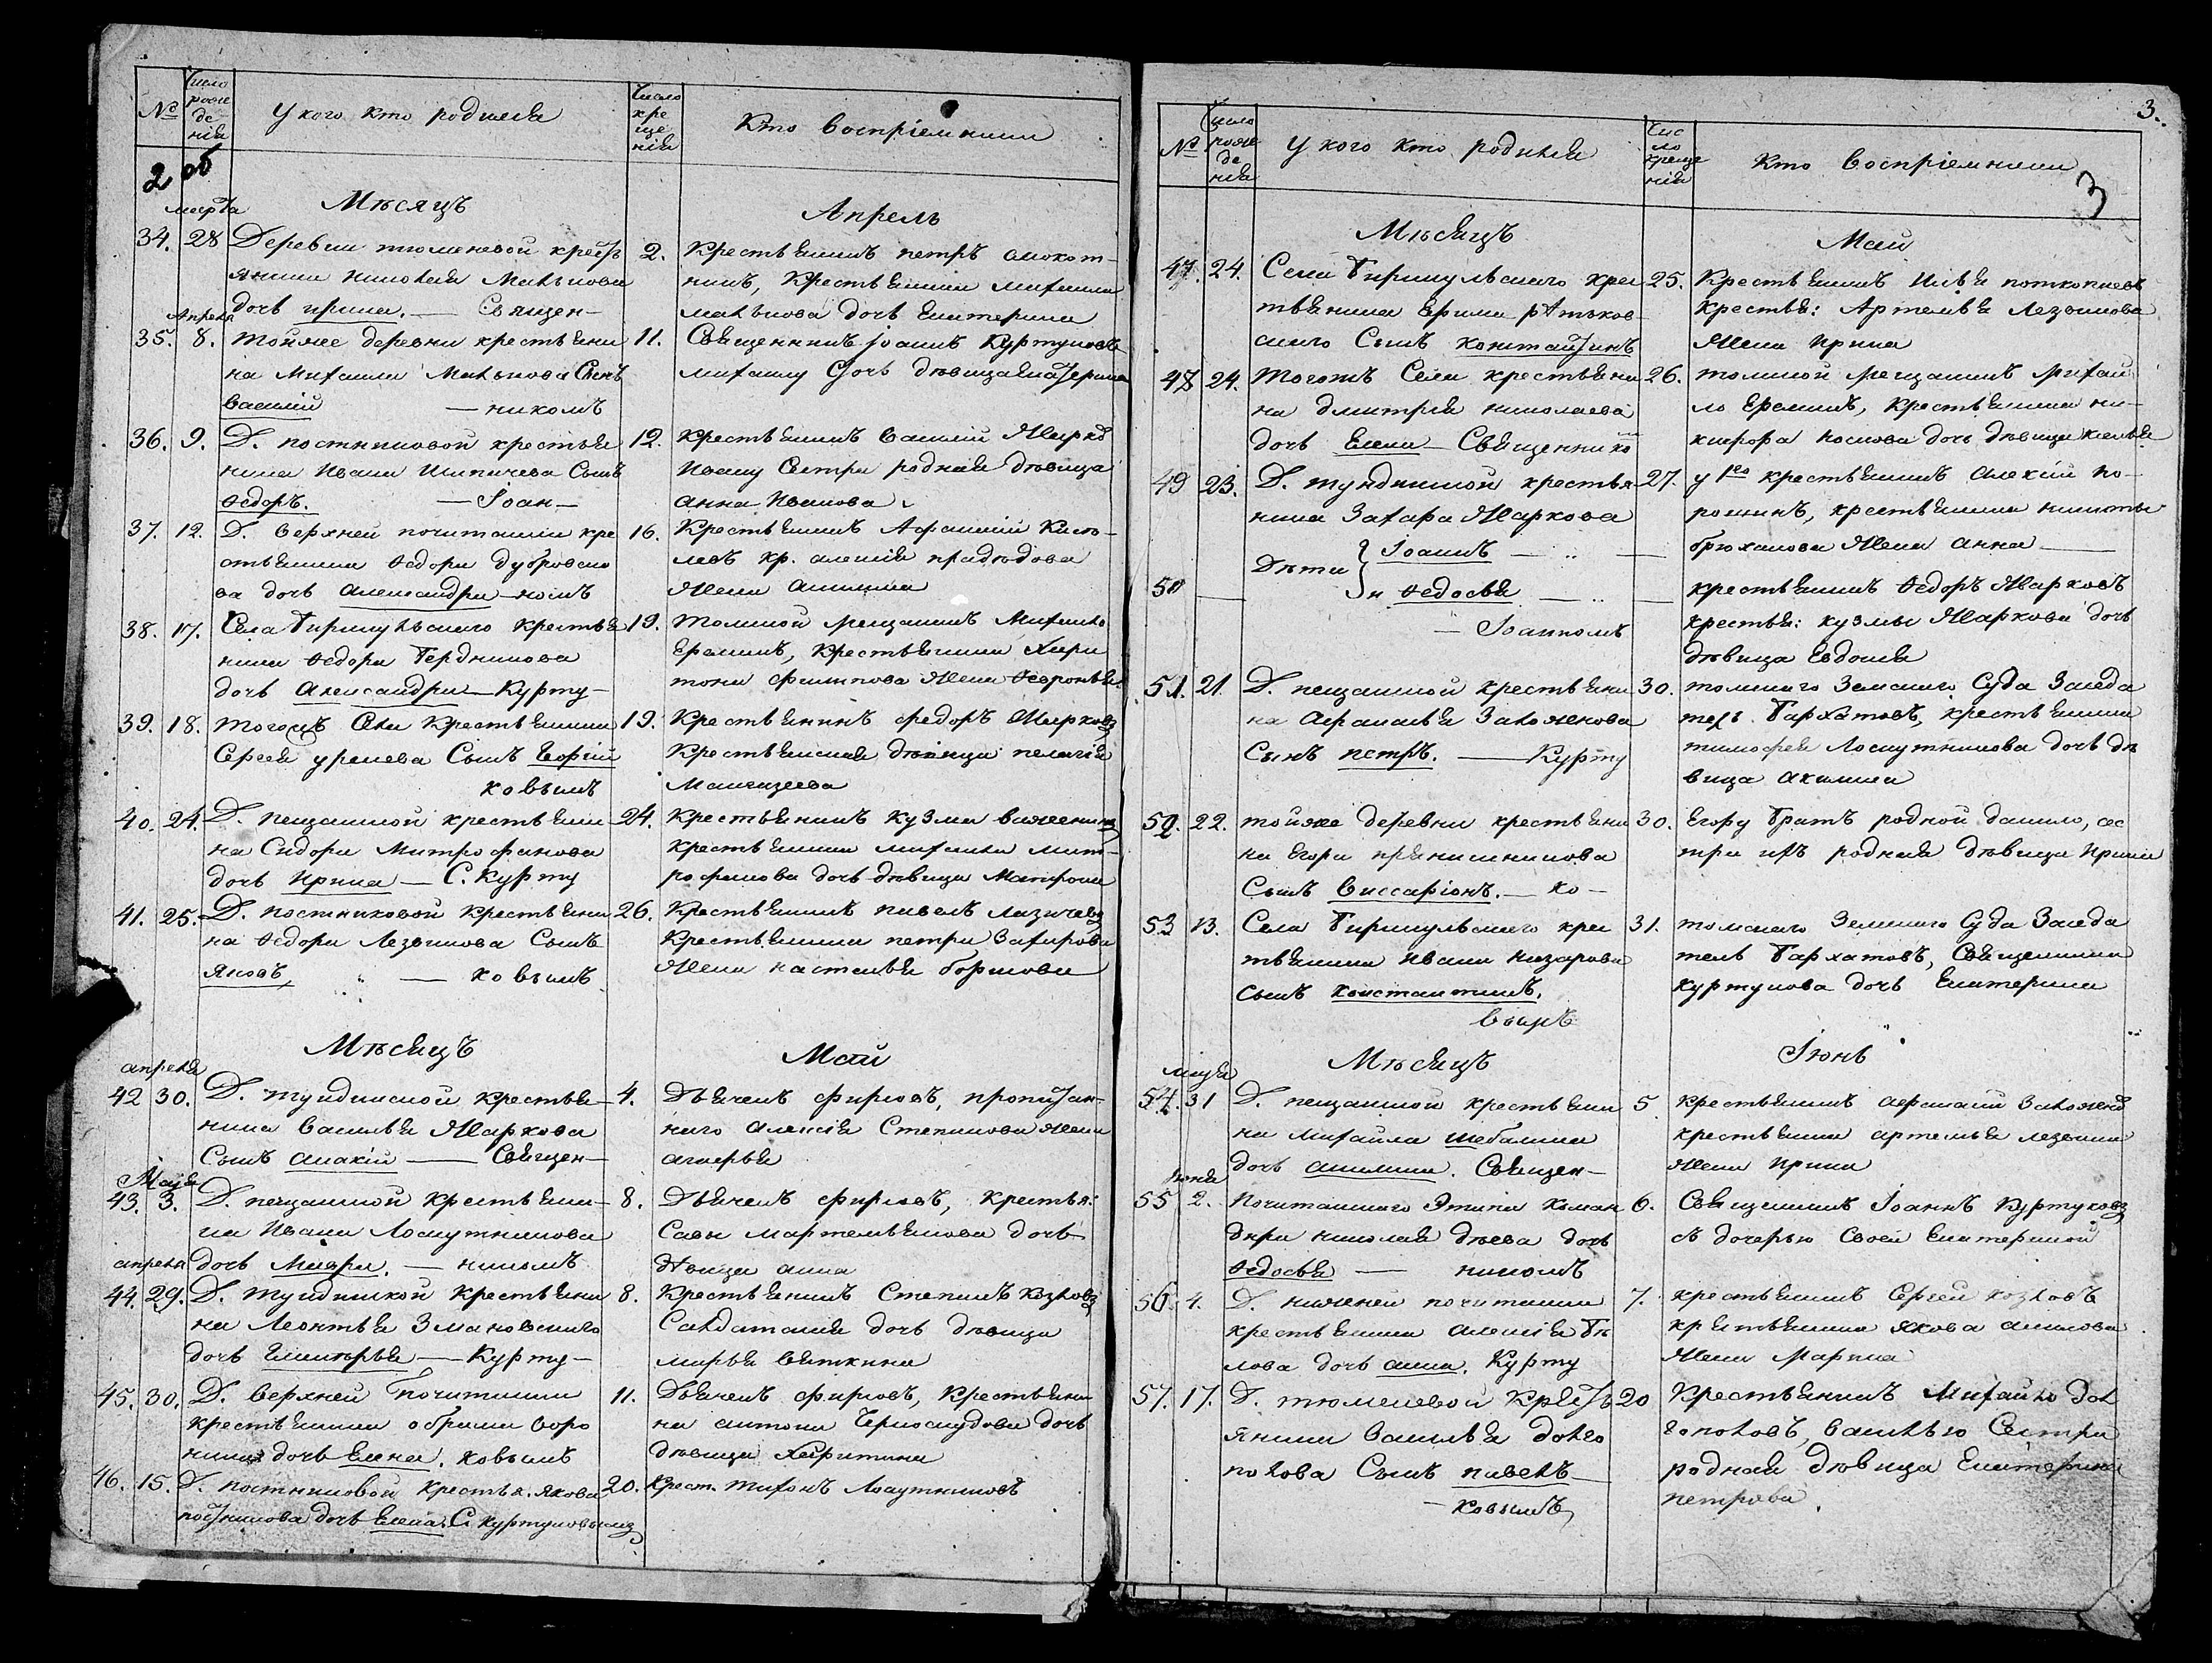 №
Число рожденія
У кого кто родился
Число крещенія
Кто воспріемники
2 об
Мѣсяцъ
Апрель
марта
34. 28 Деревни тюменевой крест
янина николая Манькова
дочь ирина. — Священ—
2. Крестьянинъ петръ
нинъ, Крестьянина михаила
манькова дочь Екатерина
Апреля
35. 8. тойже деревни крестьяни
на михаила Манькова Сынъ
василій — никомъ
11. Священникъ іоаннъ Куртуковъ
михаилу дочь дѣвица Екатерина
36. 9. Д. постниковой крестья
нина Ивана Шипичева Сынъ
Ѳедоръ. — Іоан—
12. крестьянинъ василій Жарко
Ивану Сестра родная дѣвица
анна Иванова
37. 12. Д. верхней почитанки кре
стьянина Ѳедора дубровско
ва дочь александра — номъ
16. Крестьянинъ Афанасій Кисе—
левъ кр. алексѣя
жена
38. 17. Села Бирикульскаго крестья
нина Ѳедора Бердникова
дочь александра — Курту—
19. томской мещанинъ Михайло
Ереминъ, Крестьянина Хари
тона филипова жена Ѳевронья
39. 18. тогожъ Села Крестьянина
Сергея Сынъ Георгій
ковымъ
19. Крестьянинъ федоръ Жарковъ
Крестьянская дѣвица пелагія
40. 24. Д. пещанкой крестьяни
на Сидора Митрофанова
дочь Ирина — С. Курту
24. Крестьянинъ Кузма важенинъ
крестьянина михаила мит—
рофанова дочь дѣвица Матрона
41. 25. Д. постниковой Крестьяни
на Ѳедора Лезвинова Сынъ
Яковъ, — ковымъ
26. Крестьянинъ павелъ
Крестьянина петра Захарова
жена настасья
Мѣсяцъ
Май
апреля
42 30. Д. тундинской крестья—
нина василья Жаркова
Сынъ — Священ—
4. Дьячекъ фирсовъ,
алексѣя Степанова жена
Мая
43. 3. Д. пещанкой Крестьяни—
на Ивана Лоскутникова
дочь Мавра. — никомъ
8. Дьячекъ фирсовъ, крестья:
Савы мартемьянова дочь
дѣвица анна
апреля
44. 29. Д. тундинской Крестьяни
на Леонтья Змановскаго
дочь — Курту—
8. Крестьянинъ Степанъ Козловъ
Салдатская дочь дѣвица
марья вяткина
45. 30. Д. верхней почитанки
крестьянина
дочь Елена. ковымъ
11. Дьячекъ фирсовъ, Крестьяни
на антона дочь
дѣвица Харитина
46. 15. Д. постниковой Крестья. Якова
постникова дочь Елена. С. Куртуковымъ
20. Крест. тихонъ Лоскутниковъ
3.
№
Число рожденія
У кого кто родился
Число крещенія
Кто воспріемники
3
Мѣсяцъ
Май
47. 24. Села Бирикульскаго крес
тьянина Ефима
скаго Сынъ константинъ
25. Крестьянинъ Илья
Крестья: Артемья Лезвинова
жена Ирина
48 24. тогожъ Села крестьяни
на дмитрія николаева
дочь Елена — Священнико
26. томской мещанинъ михай
ло Ереминъ, крестьянина ни—
кифора носкова дочь дѣвица
49 23. Д. тундинской крестья—
нина Захара Жаркова
Дѣти Іоаннъ — — —
27. у 1го крестьянинъ алексѣй
крестьянина никиты
жена анна —
50 — и Ѳедосья — — —
— Іоанномъ
крестьянинъ Ѳедоръ Жарковъ
крестья: кузмы Жаркова дочь
дѣвица Евдокія
51. 21. Д. пещанкой крестьяни
на Афанасья Заложнова
Сынъ петръ. — Курту
30. томскаго Земскаго Суда Заседа
тель Бархатовъ, крестьянина
тимофея Лоскутникова дочь дѣ
вица акилина
52. 22. тойже деревни крестьяни
на Егора прянишникова
Сынъ виссаріонъ. — ко—
30. Егору братъ родной данило, сес
тра ихъ родная дѣвица Ирина
53 13. Села Бирикульскаго крес
тьянина ивана назарова
Сынъ константинъ.
вымъ
31. томскаго Земскаго Суда Заседа
тель Бархатовъ, Священника
куртукова дочь Екатерина
Мѣсяцъ
Іюнь
маія
54. 31 Д. пещанкой крестьяни
на михайла шебалина
дочь акилина. Священ—
5. крестьянинъ афанасій Заложно
крестьянина артемья лезвина
жена Ирина
іюня
55 2. Почитанскаго Этапа Коман
дира николая дѣева дочь
Ѳедосья — никомъ
6. Священникъ Іоаннъ Куртуковъ
съ дочерью своей Екатериной
56. 4. Д. нижней почитанки
крестьянина алексѣя Бѣ
лова дочь анна. Курту
7. крестьянинъ Сергей козловъ
крестьянина якова
жена Марина
57. 17. Д. тюменевой Крест
янина василья долго
полова Сынъ павелъ —
— ковымъ
20 Крестьянинъ Михайло дол
гополовъ, василью Сестра
родная дѣвица Екатерина
петрова.